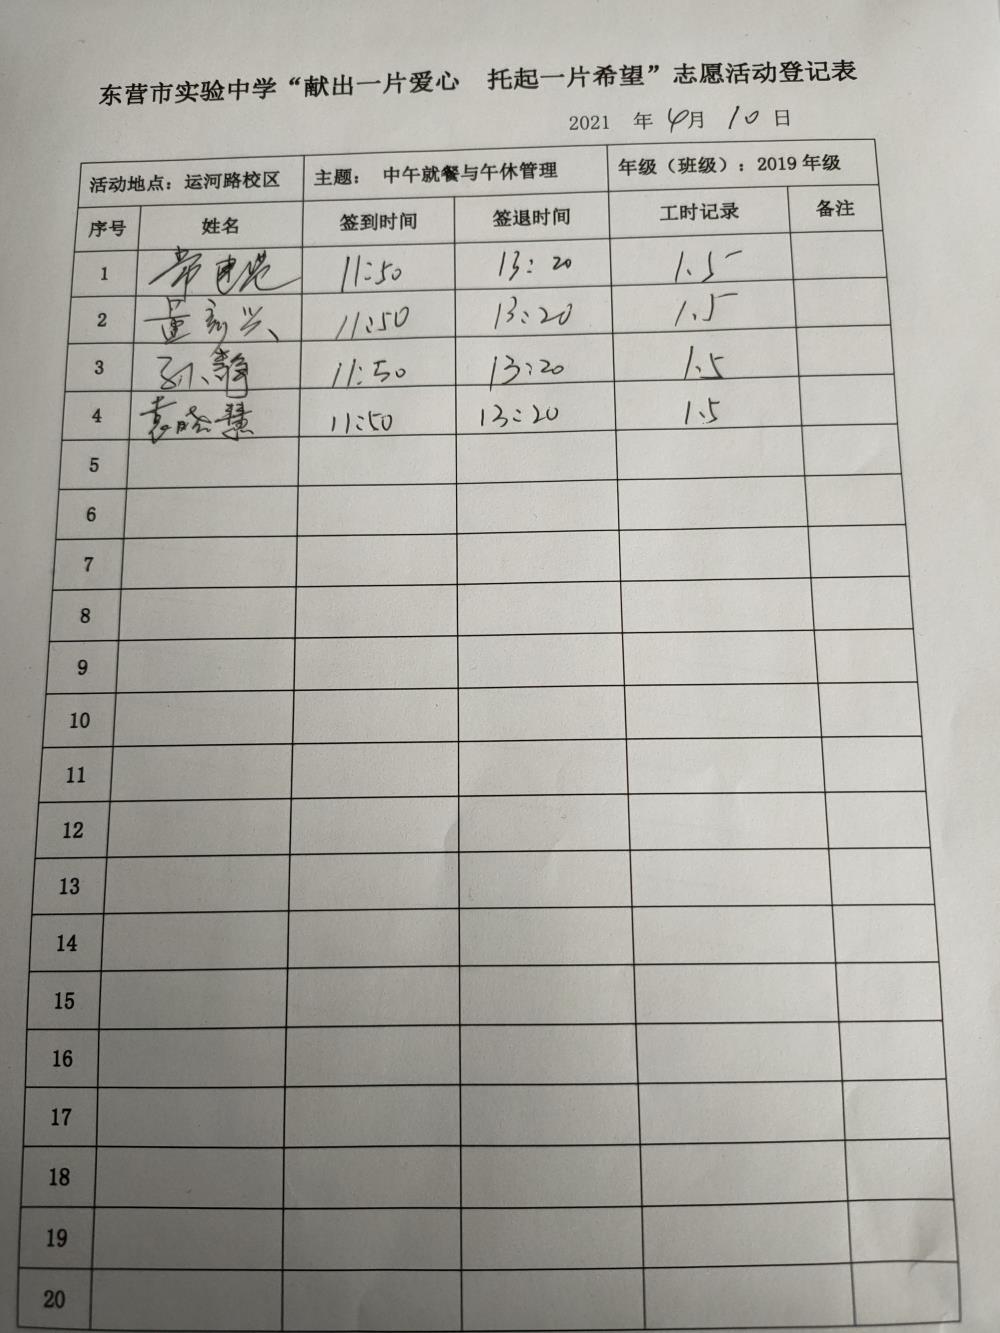 东营市实验中学“献出一片爱心 托起一片希望”志愿活动登记表
2021 年 4月 10 日
活动地点：运河路校区 主题： 中午就餐与午休管理 年级（班级）：2019 年级
序号 姓名 签到时间 签退时间 工时记录 备注
1 11:50 13:20 1.5
2 11:50 13:20 1.5
3 孙静 11:50 13:20 1.5
4 袁晓慧 11:50 13:20 1.5
5
6
7
8
9
10
11
12
13
14
15
16
17
18
19
20